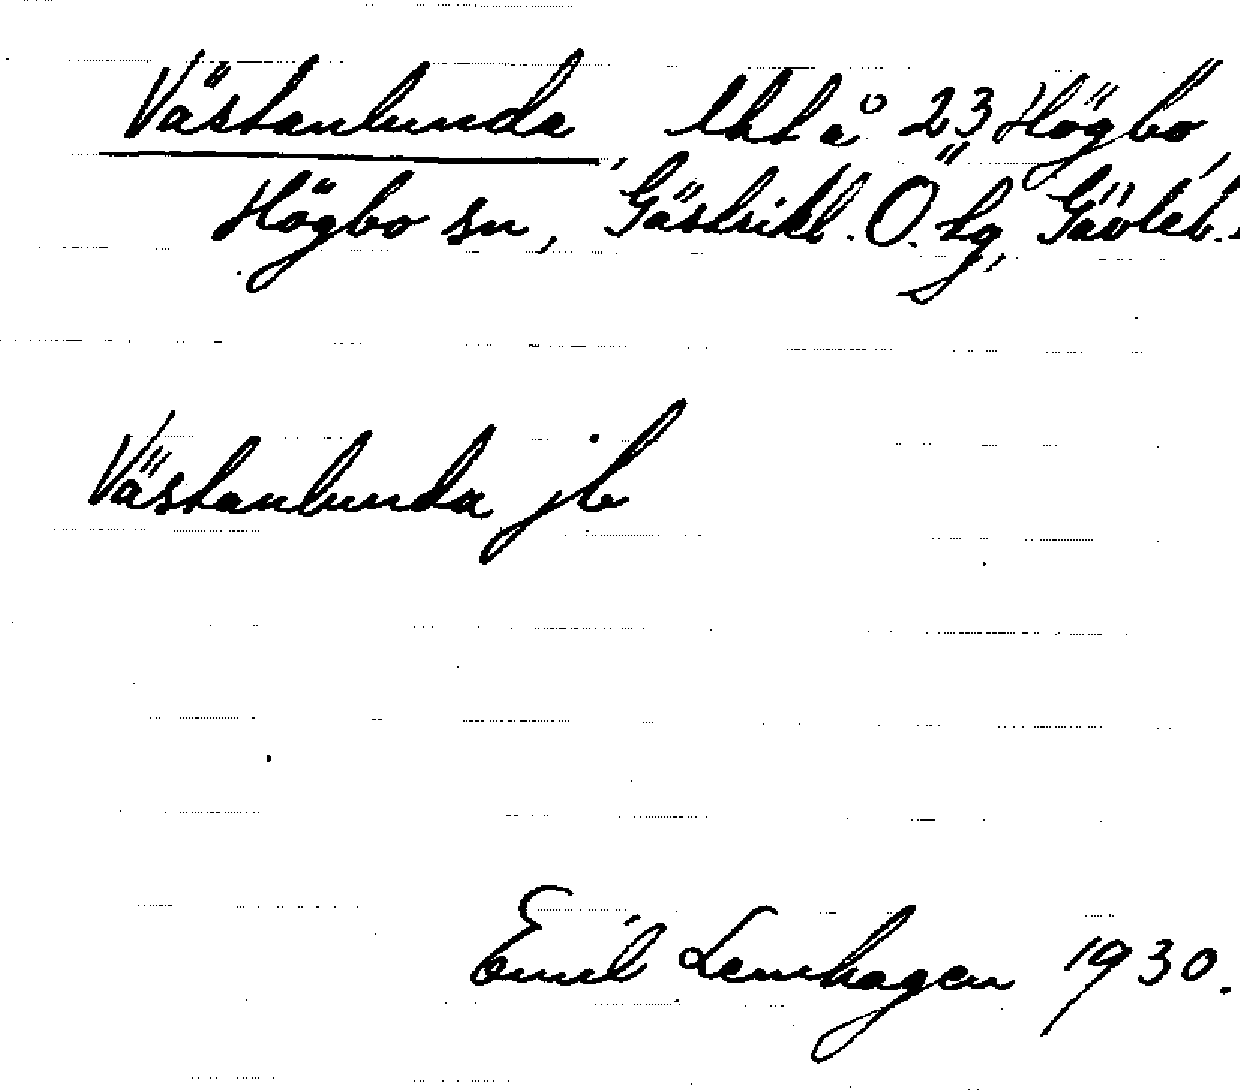 Västanlunda, lht å 23 Högbo,
Högbo sn, Gästrikl. Ö. tg, Gävleb.
Västanlunda jb
Emil Lennhagen 1930.